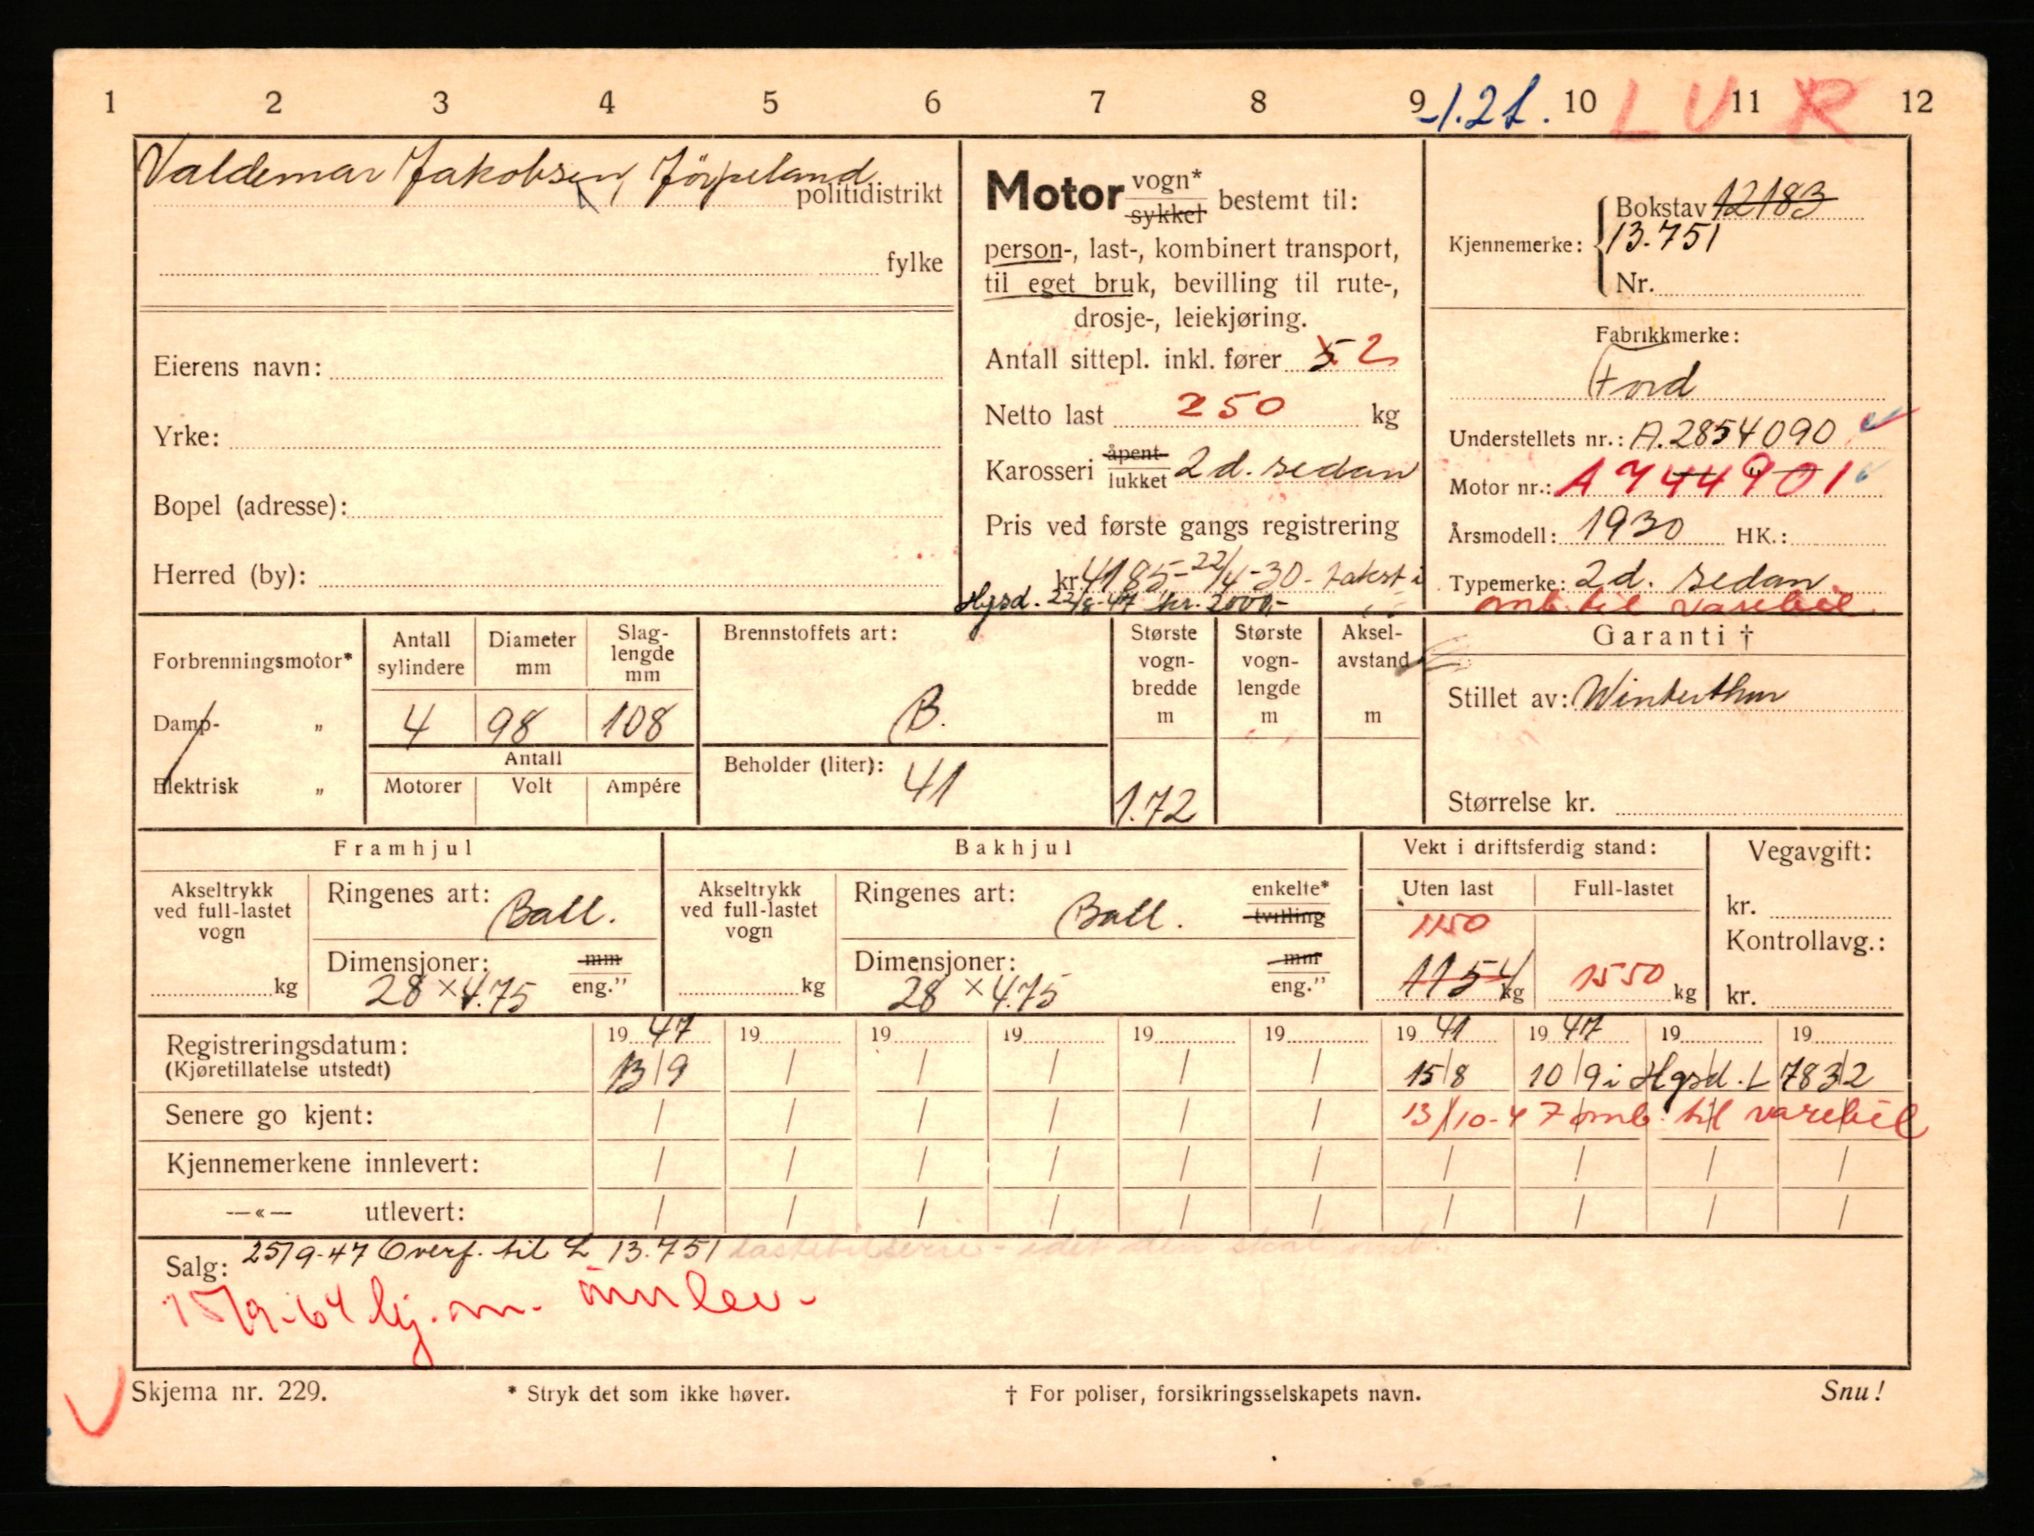 1 2 3 4 5 6 7 8 9 -1.2L. 10 L V 11 R 12
Valdemar Jakobsen, Jörpeland politidistrikt
fylke
Eierens navn:
Yrke:
Bopel (adresse):
Herred (by):
Motor vogn* sykkel bestemt til:
person-, last-, kombinert transport,
til eget bruk, bevilling til rute-,
drosje-, leiekjøring.
Antall sittepl. inkl. fører 5 2
Netto last 250 kg
Karosseri åpent lukket 2 d. sedan
Pris ved første gangs registrering
kr 4185- 22/4-30 - takst i
Hgsd. 22/8-47 kr. 2000,-
Kjennemerke: Bokstav 12183
13.751
Nr.
Fabrikkmerke:
Ford
Understellets nr.: A.2854090
Motor nr.: A 744901
Årsmodell: 1930 HK.:
Typemerke: 2 d. sedan
omb. til varebil.
Forbrenningsmotor*
Damp- „
Elektrisk „
Antall sylindere
Diameter mm
Slag-lengde mm
4 98 108
Antall
Motorer Volt Ampére
Brennstoffets art:
B.
Beholder (liter): 41
Største vogn-bredde m
1.72
Største vogn-lengde m
Aksel-avstand m
Garanti †
Stillet av: Winterthur
Størrelse kr.
Framhjul
Akseltrykk ved full-lastet vogn
kg
Ringenes art: Ball.
Dimensjoner: mm
28 × 4.75 eng."
Bakhjul
Akseltrykk ved full-lastet vogn
kg
Ringenes art: Ball. enkelte* tvilling
Dimensjoner: mm
28 × 4.75 eng."
Vekt i driftsferdig stand:
Uten last Full-lastet
1150
1154 kg 1550 kg
Vegavgift:
kr.
Kontrollavg.:
kr.
19 47 19 19 19 19 19 19 41 19 47 19 19
Registreringsdatum:
(Kjøretillatelse utstedt) 13/9 / / / / / 15/8 10/9 i Hgsd. L 7832
Senere go kjent: / / / / / / 13/10-47 omb. til varebil
Kjennemerkene innlevert: / / / / / / / / / /
—«— utlevert: / / / / / / / / / /
Salg: 25/9-47 Overf. til L 13.751 lastebilserie - idet den skal omb.
15/9-64 kj. m. innlev.
Skjema nr. 229. * Stryk det som ikke høver. † For poliser, forsikringsselskapets navn. Snu!